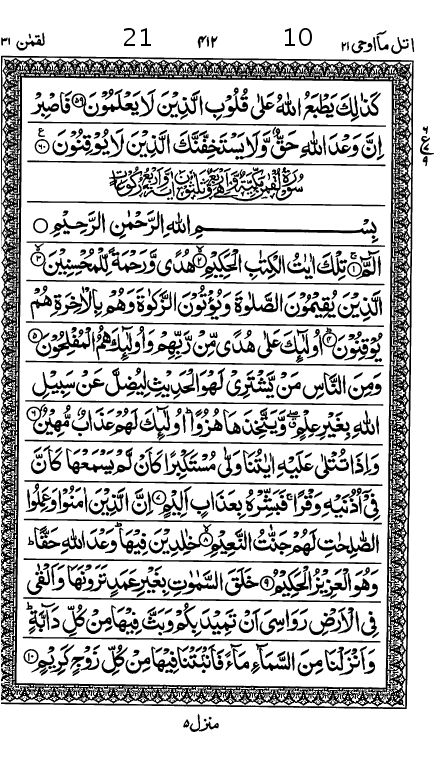 اتل مآاوحی ۲۱ 10 ۴۱۲ 21 لقمٰن ۳۱
كَذٰلِكَ يَطْبَعُ اللّٰهُ عَلٰى قُلُوْبِ الَّذِيْنَ لَا يَعْلَمُوْنَ ۵۹ فَاصْبِرْ
اِنَّ وَعْدَ اللّٰهِ حَقٌّ وَّلَا يَسْتَخِفَّنَّكَ الَّذِيْنَ لَا يُوْقِنُوْنَ ۶۰ ع
بِسْمِ اللّٰهِ الرَّحْمٰنِ الرَّحِيْمِ
الٓمّٓ ۱ تِلْكَ اٰيٰتُ الْكِتٰبِ الْحَكِيْمِ ۲ هُدًى وَّرَحْمَةً لِّلْمُحْسِنِيْنَ ۳
الَّذِيْنَ يُقِيْمُوْنَ الصَّلٰوةَ وَيُؤْتُوْنَ الزَّكٰوةَ وَهُمْ بِالْاٰخِرَةِ هُمْ
يُوْقِنُوْنَ ۴ اُولٰٓئِكَ عَلٰى هُدًى مِّنْ رَّبِّهِمْ وَاُولٰٓئِكَ هُمُ الْمُفْلِحُوْنَ ۵
وَمِنَ النَّاسِ مَنْ يَّشْتَرِيْ لَهْوَ الْحَدِيْثِ لِيُضِلَّ عَنْ سَبِيْلِ
اللّٰهِ بِغَيْرِ عِلْمٍ وَّيَتَّخِذَهَا هُزُوًا اُولٰٓئِكَ لَهُمْ عَذَابٌ مُّهِيْنٌ ۶
وَاِذَا تُتْلٰى عَلَيْهِ اٰيٰتُنَا وَلّٰى مُسْتَكْبِرًا كَاَنْ لَّمْ يَسْمَعْهَا كَاَنَّ
فِيْٓ اُذُنَيْهِ وَقْرًا فَبَشِّرْهُ بِعَذَابٍ اَلِيْمٍ ۷ اِنَّ الَّذِيْنَ اٰمَنُوْا وَعَمِلُوا
الصّٰلِحٰتِ لَهُمْ جَنّٰتُ النَّعِيْمِ ۸ خٰلِدِيْنَ فِيْهَا وَعْدَ اللّٰهِ حَقًّا ط
وَهُوَ الْعَزِيْزُ الْحَكِيْمُ ۹ خَلَقَ السَّمٰوٰتِ بِغَيْرِ عَمَدٍ تَرَوْنَهَا وَاَلْقٰى
فِي الْاَرْضِ رَوَاسِيَ اَنْ تَمِيْدَ بِكُمْ وَبَثَّ فِيْهَا مِنْ كُلِّ دَآبَّةٍ ط
وَاَنْزَلْنَا مِنَ السَّمَآءِ مَآءً فَاَنْۢبَتْنَا فِيْهَا مِنْ كُلِّ زَوْجٍ كَرِيْمٍ ۱۰
منزل ۵